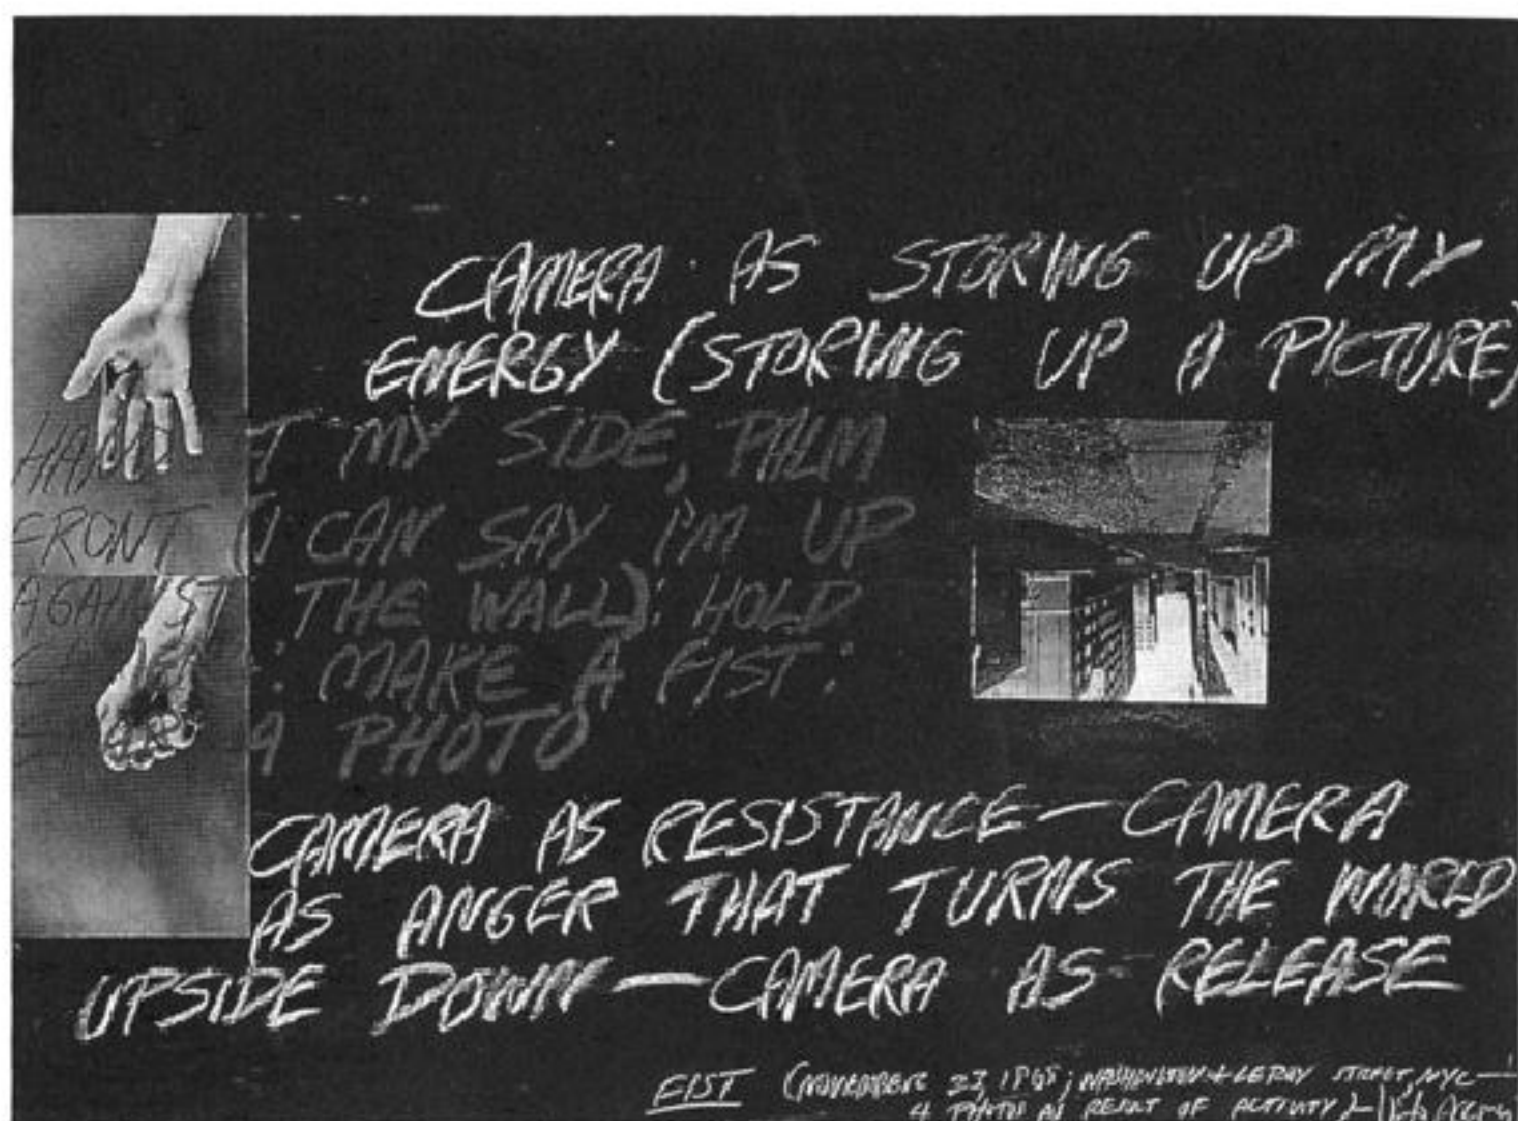 CAMERA AS STORING UP MY
ENERGY (STORING UP A PICTURE)
HAND AT MY SIDE, PALM
FRONT (I CAN SAY I'M UP
AGAINST THE WALL): HOLD
: MAKE A FIST:
A PHOTO
CAMERA AS RESISTANCE—CAMERA
AS ANGER THAT TURNS THE WORLD
UPSIDE DOWN—CAMERA AS RELEASE
FIST (NOVEMBER 23, ; WASHINGTON & LEROY STREET, NYC—
4 PHOTOS AS RESULT OF ACTIVITY)—